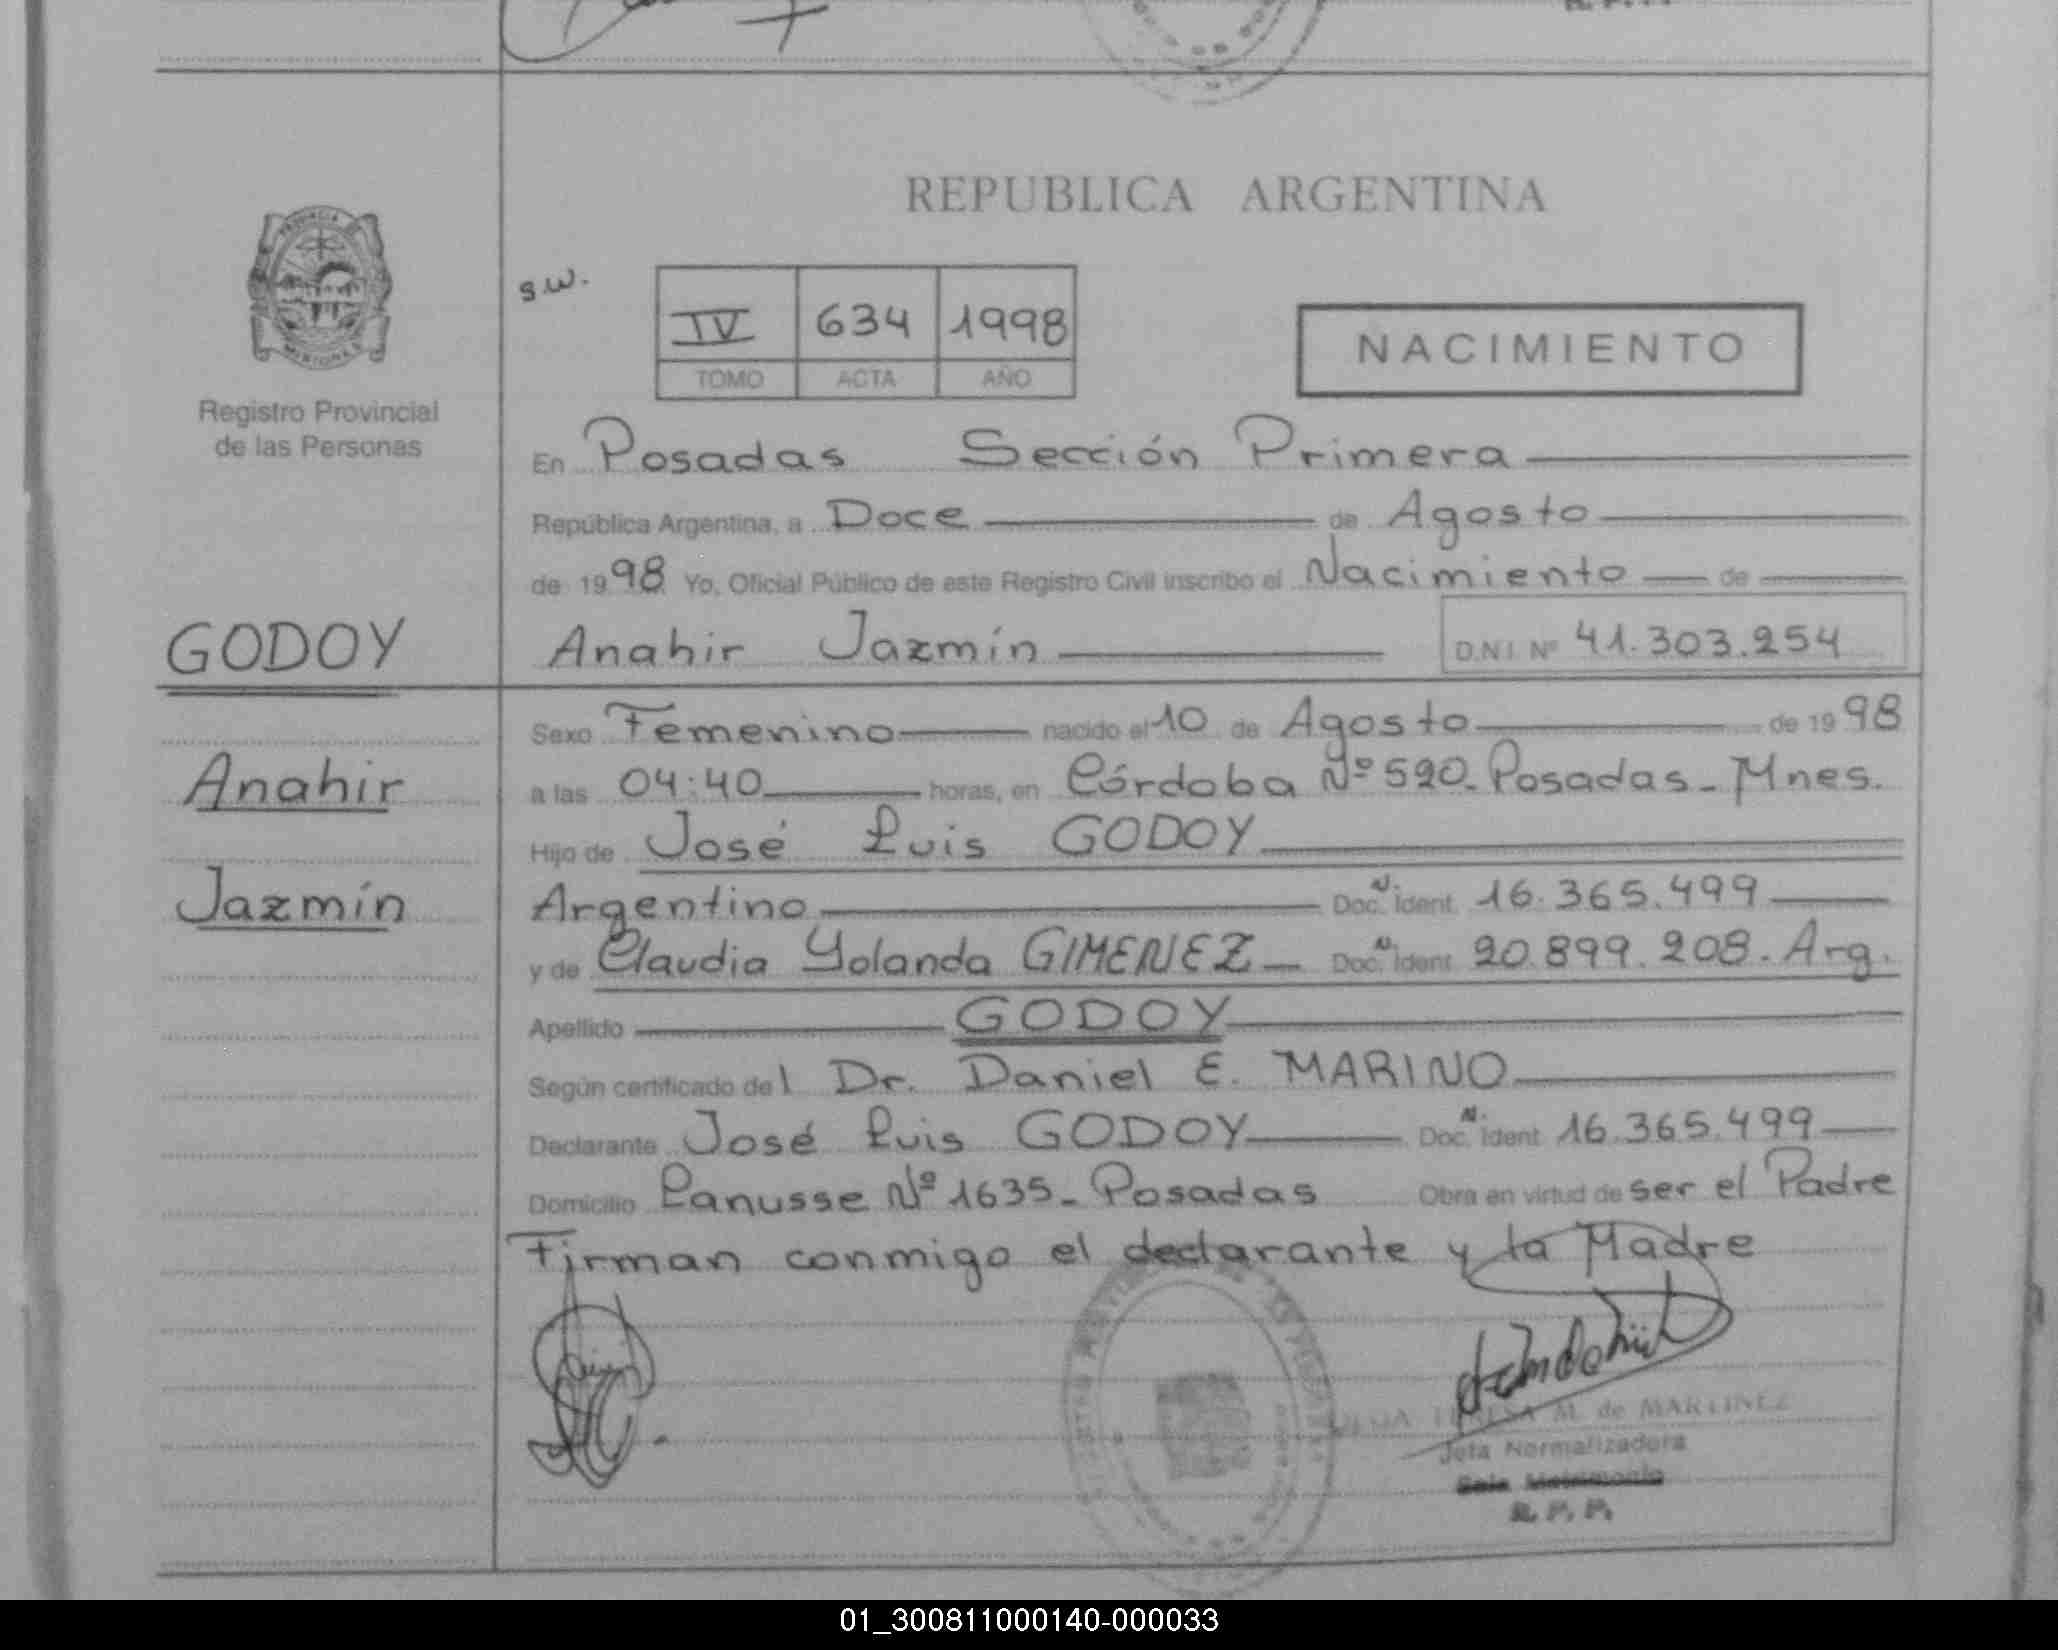 REPUBLICA ARGENTINA
PROVINCIA DE MISIONES
Registro Provincial
de las Personas
s.w.
IV 634 1998
TOMO ACTA AÑO
NACIMIENTO
En Posadas Sección Primera
República Argentina, a Doce de Agosto
de 1998 Yo, Oficial Público de este Registro Civil inscribo el Nacimiento de
GODOY Anahir Jazmín D.N.I. Nº 41.303.254
Sexo Femenino nacido el 10 de Agosto de 1998
Anahir a las 04:40 horas, en Córdoba Nº 520_ Posadas_ Mnes.
Hijo de José Luis GODOY
Jazmín Argentino Doc. N. Ident. 16.365.499
y de Claudia Yolanda GIMENEZ Doc. N. Ident 20.899.208. Arg.
Apellido GODOY
Según certificado del Dr. Daniel E. MARINO
Declarante José Luis GODOY Doc. N. Ident 16.365.499
Domicilio Lanusse Nº 1635_ Posadas Obra en virtud de ser el Padre
Firman conmigo el declarante y la Madre
TERESA M. de MARTINEZ
Jefa Normalizadora
R.P.P.
01_300811000140-000033